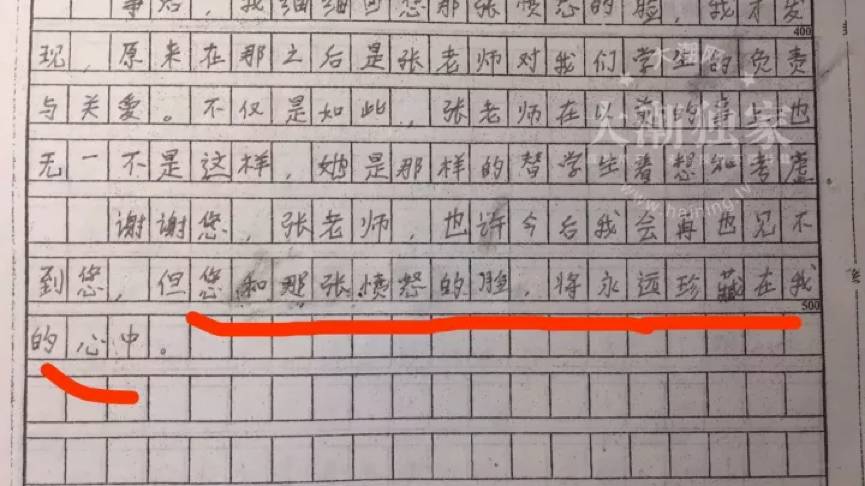 事后，我细细回想那张愤怒的脸，我才发
400
现，原来在那之后是张老师对我们学生的负责
与关爱。不仅是如此，张老师在以前的事上也
无一不是这样，她是那样的替学生着想和考虑
谢谢您，张老师，也许今后我会再也见不
到您，但您和那张愤怒的脸，将永远珍藏在我
500
的心中。
大潮网
大潮独家
www.haining.tv